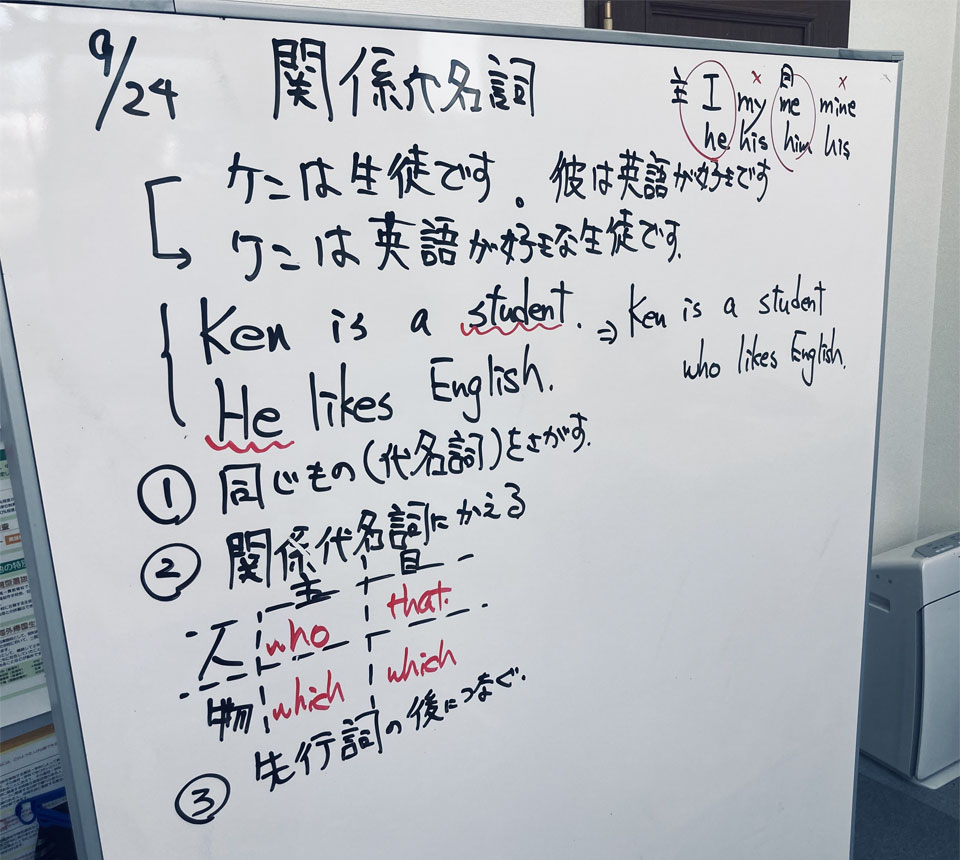 9/24 関係代名詞
主 I my 目 me mine
he his him his
ケニは生徒です。彼は英語が好きです
ケニは英語が好きな生徒です.
Ken is a student. ⇒ Ken is a student
who likes English.
He likes English.
① 同じもの(代名詞)をさがす.
② 関係代名詞にかえる
主 目
人 who that
物 which which
③ 先行詞の後につなぐ.